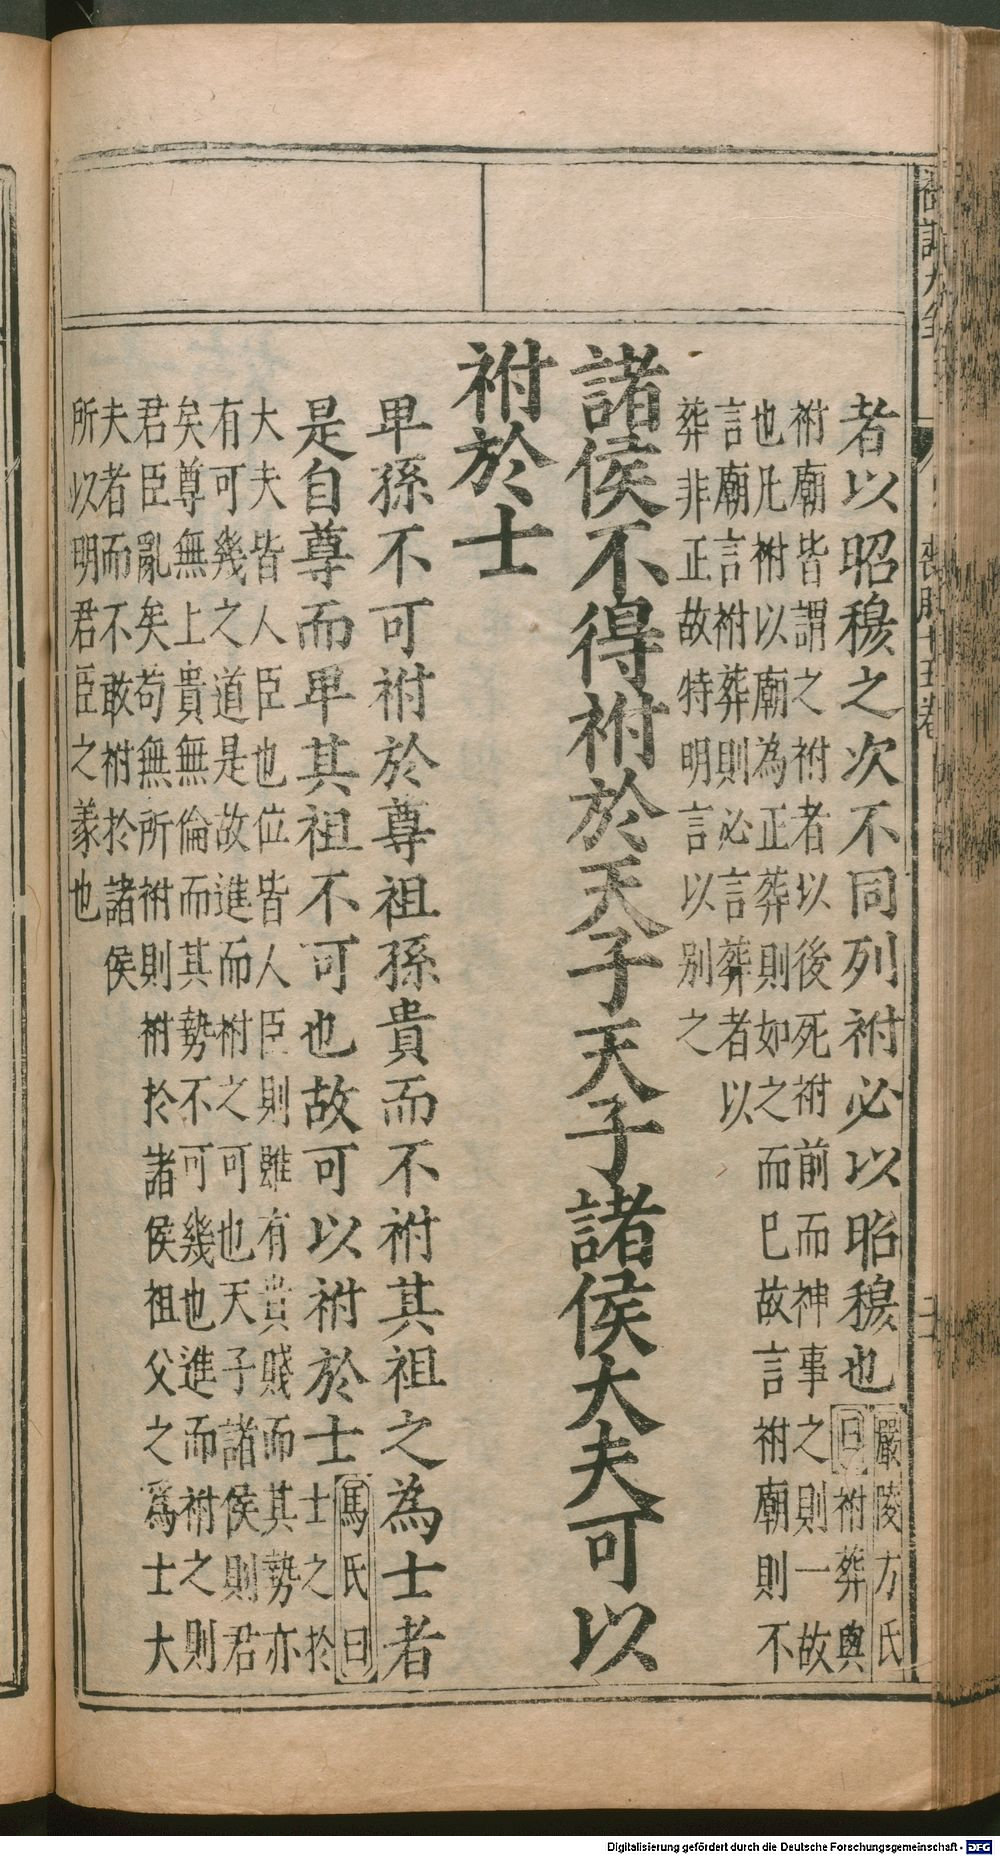 者以昭穆之次不同列祔必以昭穆也
嚴陵方氏
曰祔葬與
祔廟皆謂之祔者以後死祔前而神事之則一故
也凡祔以廟為正葬則如之而已故言祔廟則不
言廟言祔葬則必言葬者以
葬非正故特明言以别之
諸侯不得祔於天子天子諸侯大夫可以
祔於士
卑孫不可祔於尊祖孫貴而不祔其祖之為士者
是自尊而卑其祖不可也故可以祔於士
馬氏曰
士之於
大夫皆人臣也位皆人臣則雖有貴賤而其勢亦
有可幾之道是故進而祔之可也天子諸侯則君
矣尊無上貴無倫而其勢不可幾也進而祔之則
君臣亂矣苟無所祔則祔於諸侯祖父之爲士大
夫者而不敢祔於諸侯
所以明君臣之義也
Digitalisierung gefördert durch die Deutsche Forschungsgemeinschaft - DFG